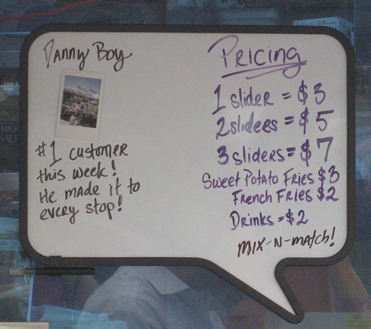 Danny Boy
#1 customer
this week!
He made it to
every stop!
Pricing
1 slider = $3
2 slidees = $5
3 sliders = $7
Sweet Potato Fries $3
French Fries $2
Drinks = $2
Mix-N-match!